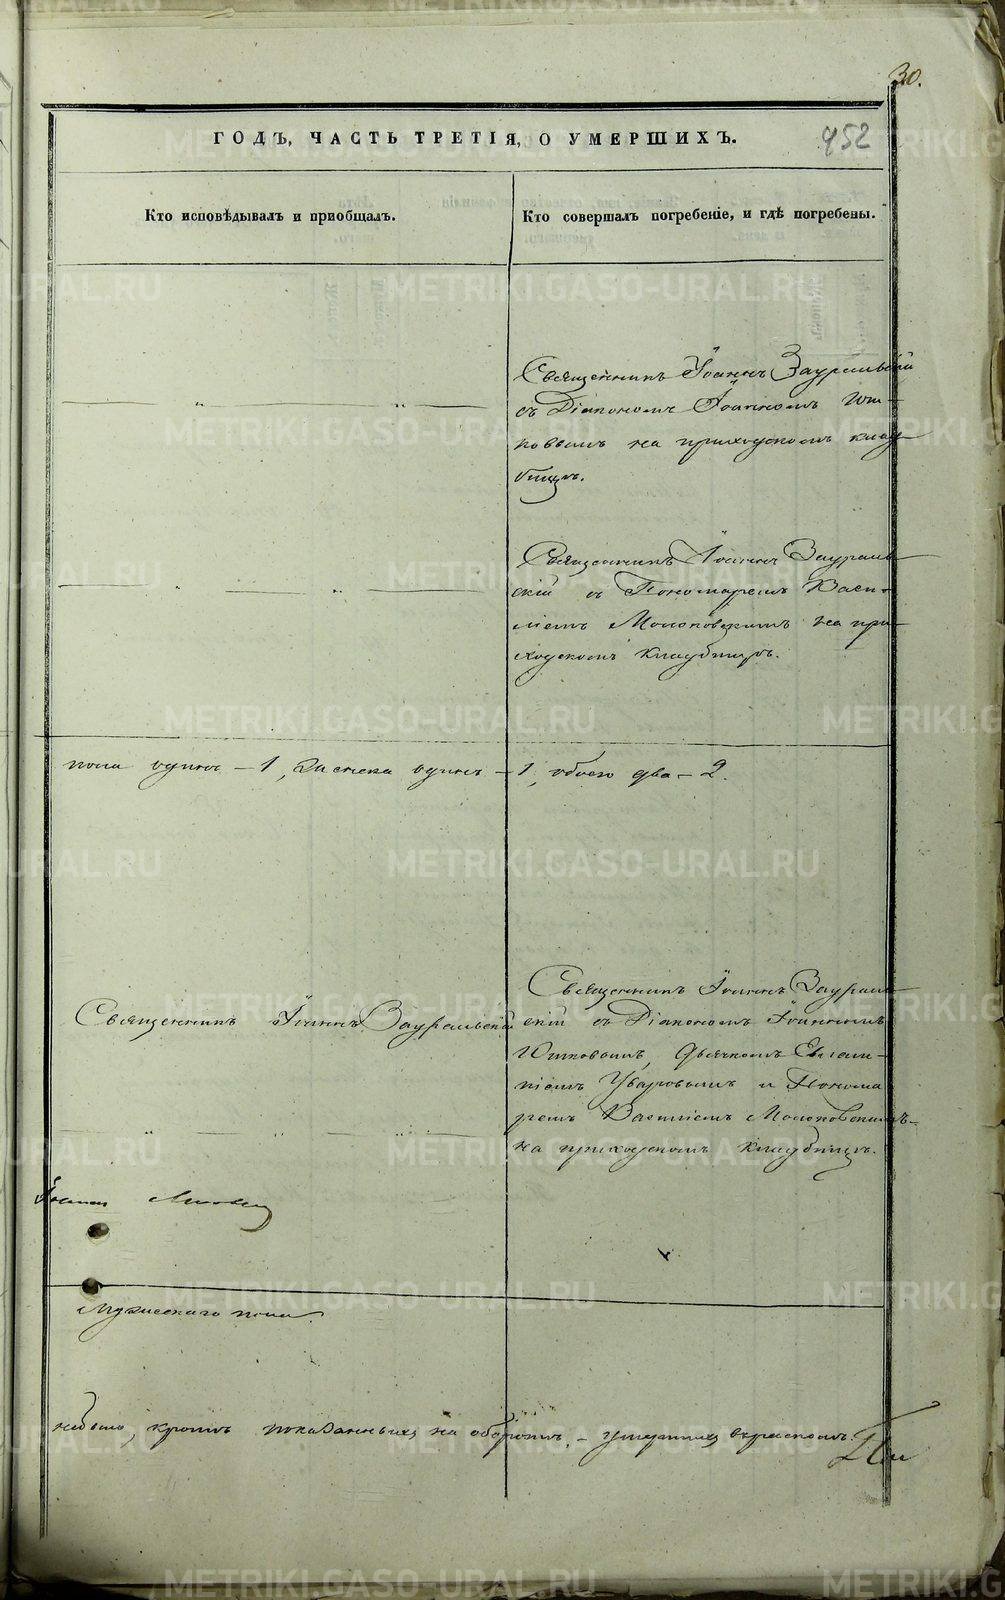 30.
ГОДЪ, ЧАСТЬ ТРЕТІЯ, О УМЕРШИХЪ. 952
Кто исповѣдывалъ и пріобщалъ.
Кто совершалъ погребеніе, и гдѣ погребены.
Священникъ Іоаннъ Зауральскій
съ Діакономъ Іоанномъ Юш-
ковымъ на приходскомъ клад-
бищѣ.
Священникъ Іоаннъ Зураль-
скій съ Пономаремъ Васи-
ліемъ Молоковскимъ на при-
ходскомъ кладбищѣ.
пола одинъ – 1, женска одинъ – 1, обоего два – 2.
Священникъ Іоаннъ Зауральскій
Священникъ Іоаннъ Заураль-
скій съ Діакономъ Іоанномъ
Юшковымъ, Дьячкомъ Евлам-
піемъ Уваровымъ и Понома-
ремъ Василіемъ Молоковскимъ-
на приходскомъ кладбищѣ.
Іоаннъ
Мужескаго пола.
небыло, кромѣ показанныхъ на оборотѣ, – умершихъ
METRIKI.GASO-URAL.RU